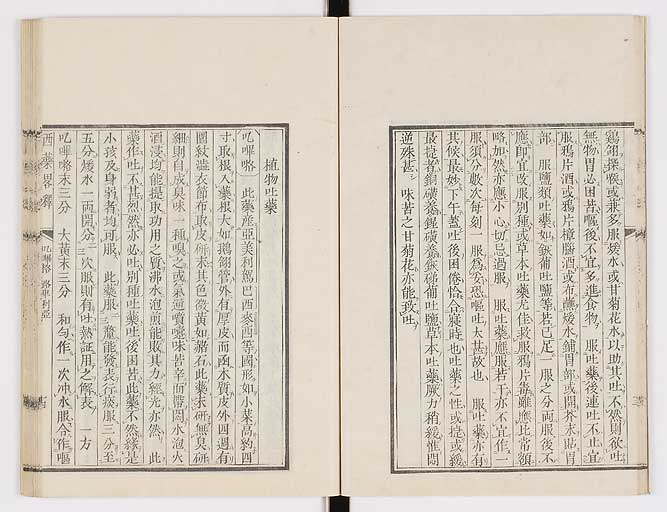 鷄翎探喉或兼多服煖水或甘菊花水以助其吐不然則欲吐
無物胃必困苦嘔後不宜多進食物服吐藥後連吐不止宜
服鴉片酒或鴉片樟腦酒或布蘸煖水鋪胃部或開芥末貼胃
部服鹽類吐藥如銻葡吐鹽等若已足一服之分兩服後不
嘔卽宜改服別種或草本吐藥尤佳救服鴉片毒雖應比常額
略加然亦應小心切忌過服服吐藥應服若干亦不宜作一
服須分數次每刻一服爲妥恐嘔吐太甚故也服吐藥亦有
其候最妙下午蓋吐後困倦恰合寢時也吐藥之性或㨗或緩
最㨗者銅磺養鋅磺養銻葡吐鹽草本吐藥厥力稍緩惟悶
逆殊甚味苦之甘菊花亦能致吐
植物吐藥
叱嗶咯此藥産亞美利駕巴西麥西等國形如小菜高約四
寸取根入藥根大如鵝翎管外有厚皮而函木質皮外四週有
圓紋澁大節布取皮硏末其色微黃如赭石此藥未硏無臭硏
細則自成臭味一種嗅之或氣逆嚏嚏味苦辛而帶悶水泡火
酒浸均能提取功用之質沸水泡煎能敗其力經光亦然此
藥作吐不甚劣然亦必吐別種吐藥吐後困苦此藥不然緣是
小孩及身弱者均可服此藥服二三釐能發表行痰服三分至
五分煖水一兩開分二三次服則有吐熱証用之解表一方
叱嗶咯末三分大黃末三分和勻作一次冲水服合作嘔
西藥畧釋
叱嗶咯